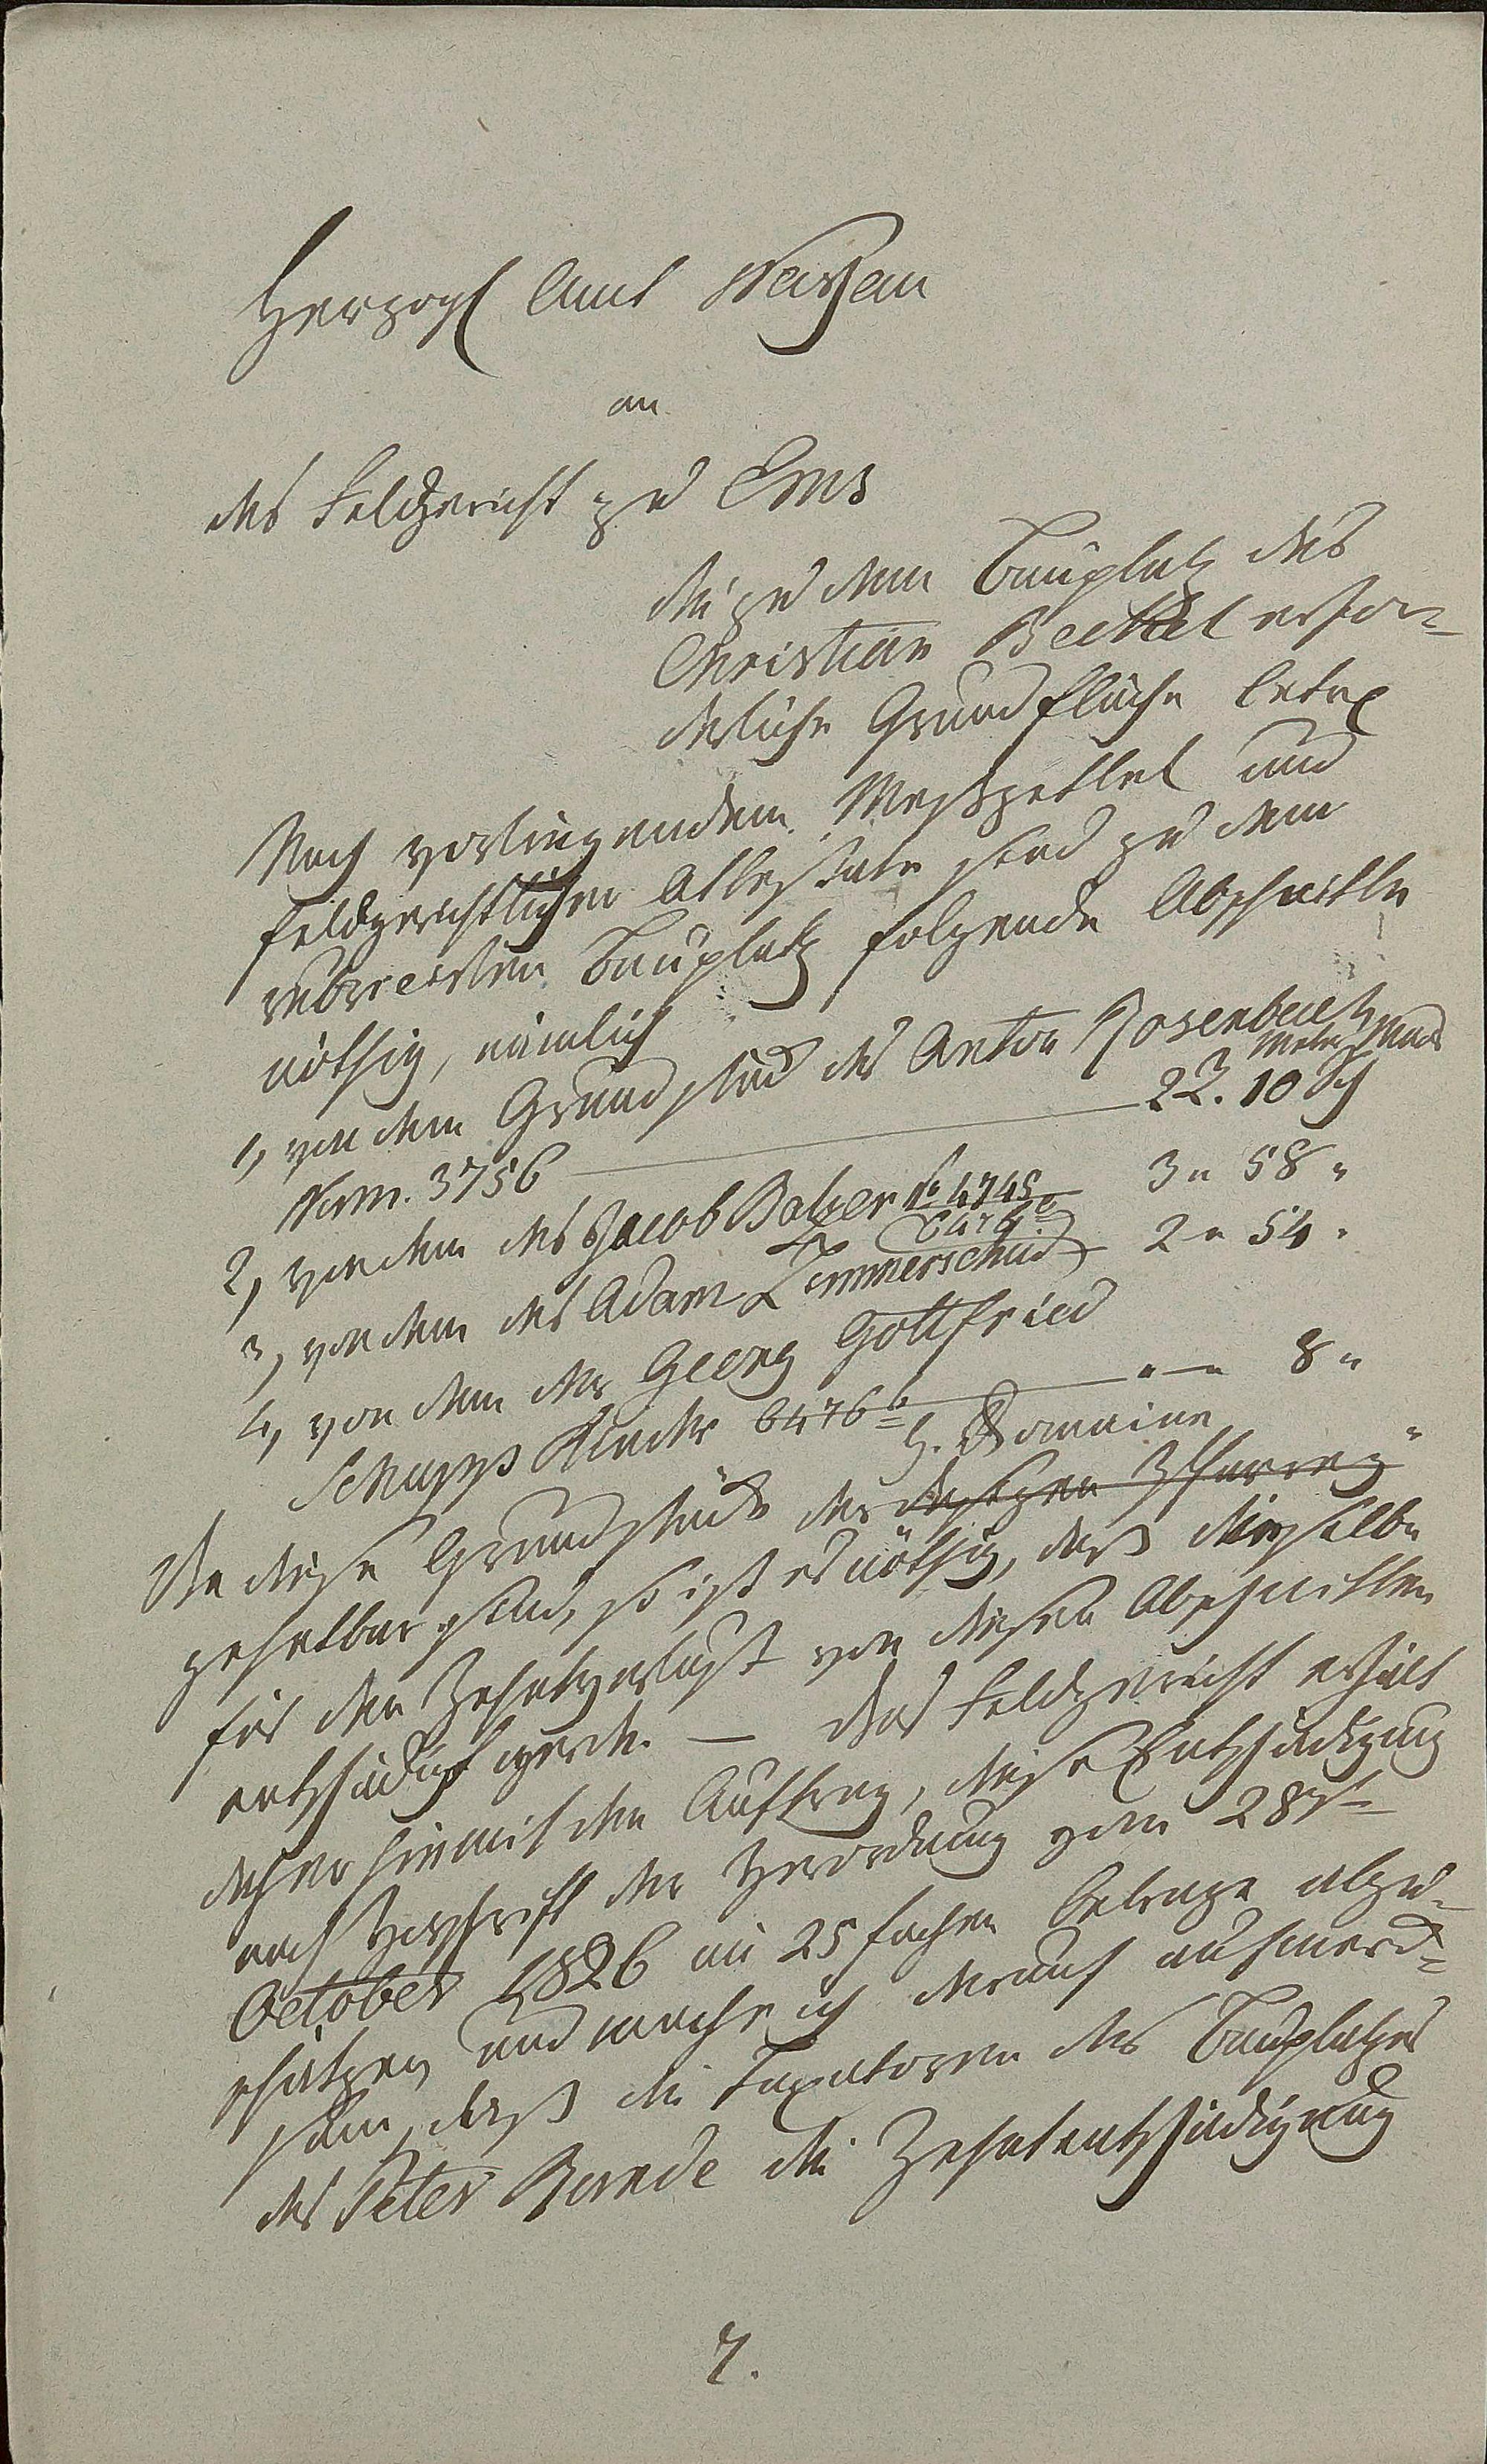 Herzogl Amt Nassau
an
das Feldgericht zu Ems
die zu dem Bauplatz des
Christian Beckel erfor=
derliche Grundfläche betrf
Nach vorliegendem Meßzettel und
feldgerichtlichen Attestate sind zu dem
rubricirten Bauplatz folgende Abschnitte
nöthig, nämlich
1, von dem Grundstück des Anton Rosenbach
Num. 3756 22. 10 Sch
2, von dem des Jacob Balzer No 4745 3 " 58 "
6474 b
3, von dem des Adam Zimmerschied 2 " 54 "
4, von dem der Georg Gottfried
Schupps Kinder 6476 b " — " 8 "
H. Domaine
Da diese Grundstücke der Pfarrey
zehetbar sind, so ist es nöthig, daß dieselbe
für den Zehetverlust von diesen Abschnitten
entschädigt werde. — Das Feldgericht erhält
daher hiermit den Auftrag, diese Entschädigung
nach Vorschrift der Verordnung vom 28ten
October 1826 im 25 fachen Betrage abzu=
schätzen und mache ich darauf aufmerk=
sam, daß die Taxatoren des Bauplatzes
des Peter Bonde die Zehetentschädigung
7.